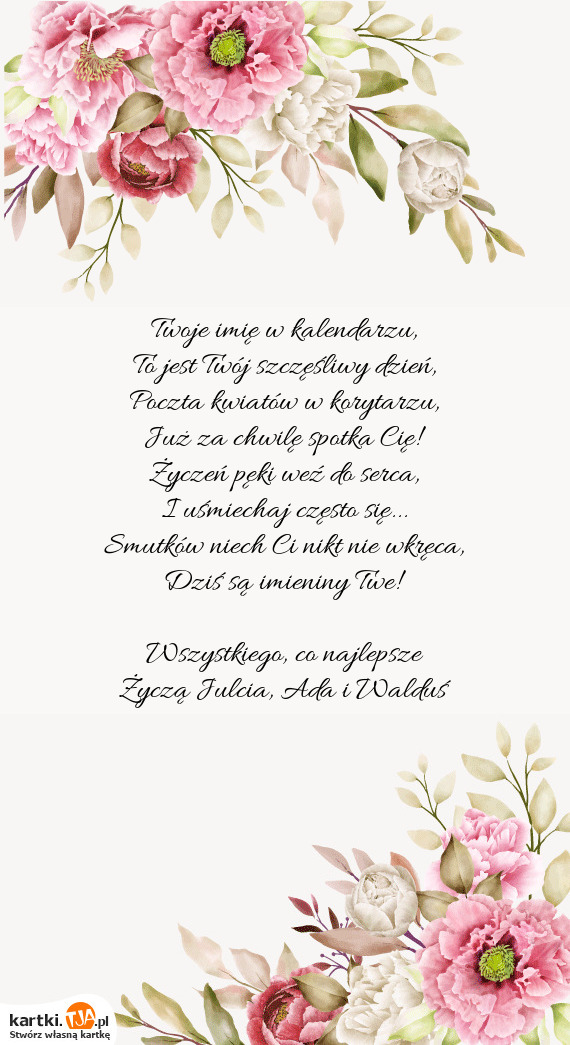 Twoje imię w kalendarzu,
To jest Twój szczęśliwy dzień,
Poczta kwiatów w korytarzu,
Już za chwilę spotka Cię!
Życzeń pęki weź do serca,
I uśmiechaj często się...
Smutków niech Ci nikt nie wkręca,
Dziś są imieniny Twe!
Wszystkiego, co najlepsze
Życzą Julcia, Ada i Walduś
kartki.TJA.pl
Stwórz własną kartkę